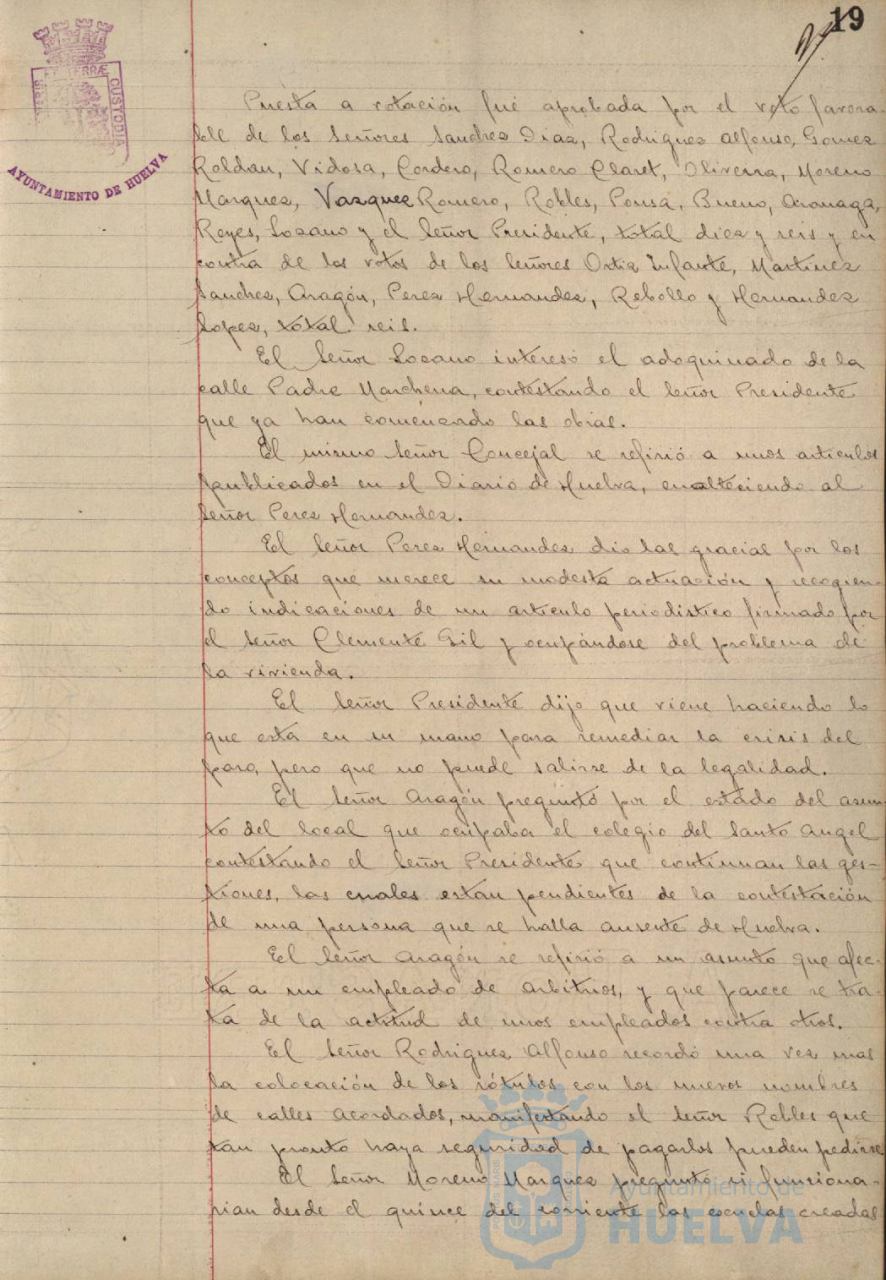 19
TERRÆ
CUSTODIA
AYUNTAMIENTO DE HUELVA
Puesta a votación fué aprobada por el voto favora-
ble de los Señores Sanchez Diaz, Rodriguez Alfonso, Gomez
Roldan, Vidosa, Cordero, Romero Claret, Oliveira, Moreno
Marquez, Vazquez Romero, Robles, Ponsa, Bueno, Aronaga,
Reyes, Lozano y el Señor Presidente, total diez y seis y en
contra de los votos de los Señores Ortiz Infante, Martinez
Sanchez, Aragón, Perez Hernandez, Rebollo y Hernandez
Lopez, total seis.
El Señor Lozano interesó el adoquinado de la
calle Padre Marchena, contestando el Señor Presidente
que ya han comenzado las obras.
El mismo Señor Concejal se refirió a unos articulos
publicados en el Diario de Huelva, enalteciendo al
Señor Perez Hernandez.
El Señor Perez Hernandez dió las gracias por los
conceptos que merece su modesta actuación y recogien-
do indicaciones de un articulo periodistico firmado por
el Señor Clemente Gil y ocupándose del problema de
la vivienda.
El Señor Presidente dijo que viene haciendo lo
que está en su mano para remediar la crisis del
paro, pero que no puede salirse de la legalidad.
El Señor Aragón preguntó por el estado del asun-
to del local que ocupaba el colegio del Santo Angel
contestando el Señor Presidente que continuan las ges-
tiones, las cuales están pendientes de la contestación
de una persona que se halla ausente de Huelva.
El Señor Aragón se refirió a un asunto que afec-
ta a un empleado de arbitrios, y que parece se tra-
ta de la actitud de unos empleados contra otros.
El Señor Rodriguez Alfonso recordó una vez mas
la colocación de los rótulos con los nuevos nombres
de calles acordados, manifestando el Señor Robles que
tan pronto haya seguridad de pagarlos pueden pedirse
El Señor Moreno Marquez preguntó si funciona-
rian desde el quince del corriente las escuelas creadas
Ayuntamiento de
HUELVA